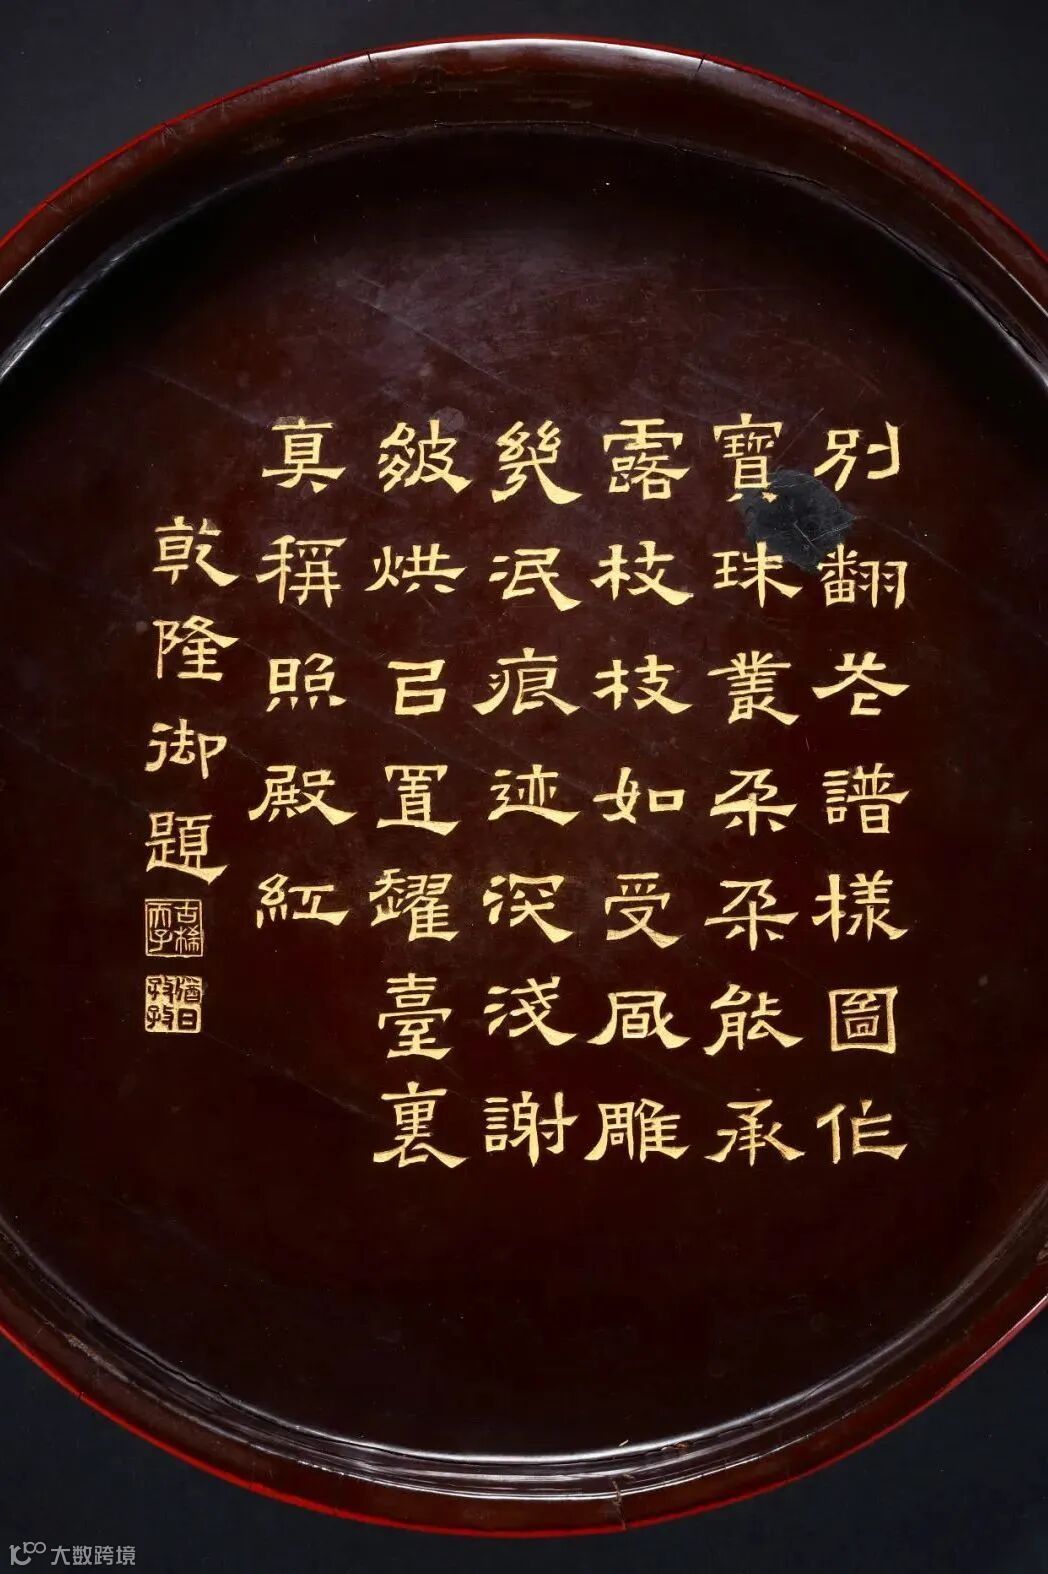 別翻花譜樣圖作
寶珠叢朶朶能承
露枝枝如受風雕
幾泯痕迹深淺謝
皴烘㠯置耀臺裏
真稱照殿紅
乾隆御題
古稀天子
猶日孜孜
大数跨境